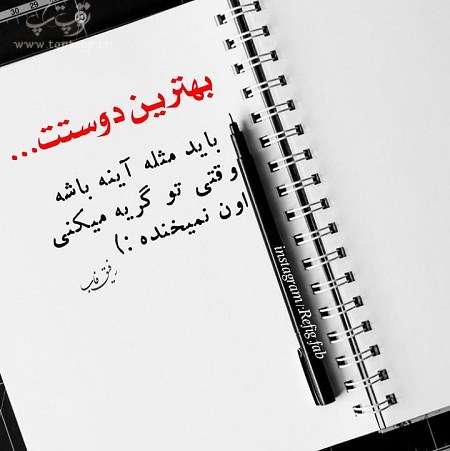 توپ تاپ
www.toptoop.ir
بهترین دوستت...
باید مثله آینه باشه
وقتی تو گریه میکنی
اون نمیخنده :)
رفیق فاب
instagram/:Refig.fab